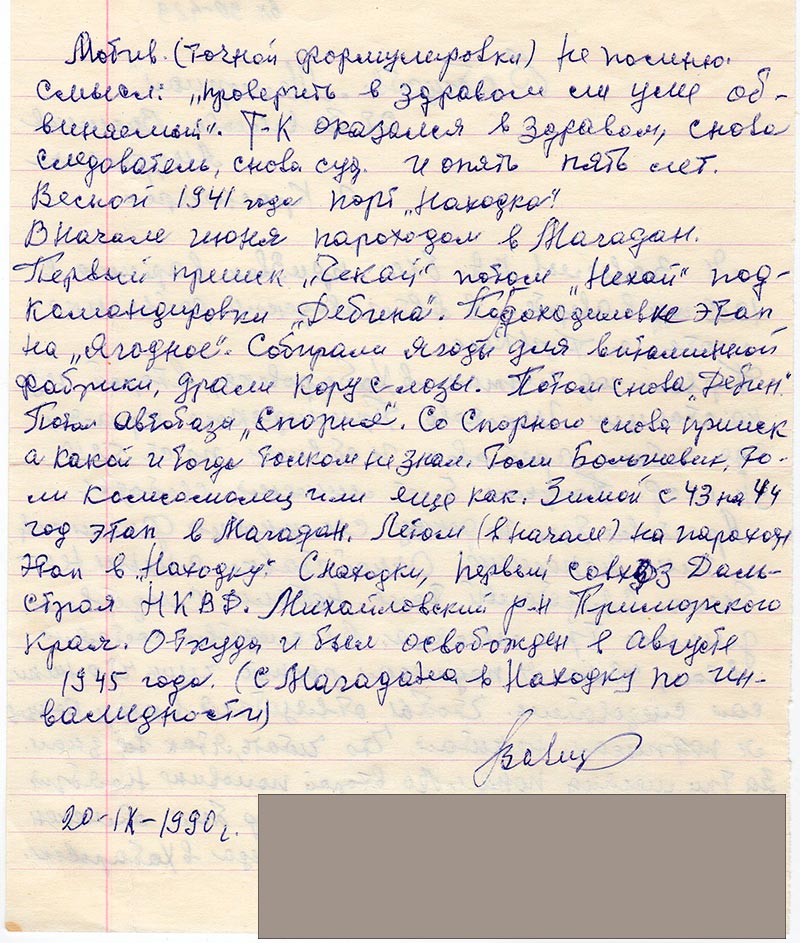 Мотив (точной формулировки) не помню.
Смысл: „проверить в здравом ли уме об-
виняемый". Т-К оказался в здравом, снова
следователь, снова суд. и опять пять лет.
Весной 1941 года порт „Находка"
В начале июня пароходом в Магадан.
Первый прииск „Чекай" потом „Нехай" под-
командировки „Дебина".
этап
на „Ягодное". Собирали ягоды для витаминной
фабрики, драли кору с лозы. Потом снова „Дебин"
Потом автобаза „Спорная". Со Спорного снова прииск
а какой и тогда толком не знал. Толи Большевик, то-
ли комсомолец или еще как. Зимой с 43 на 44
год этап в Магадан. Летом (в начале) на пароход
этап в „Находку". С находки, первый совхоз Даль-
строя НКВД. Михайловский р-н Приморского
края. Откуда и был освобожден в Августе
1945 года. (С Магадана в Находку по ин-
валидности)
20-IX-1990г.